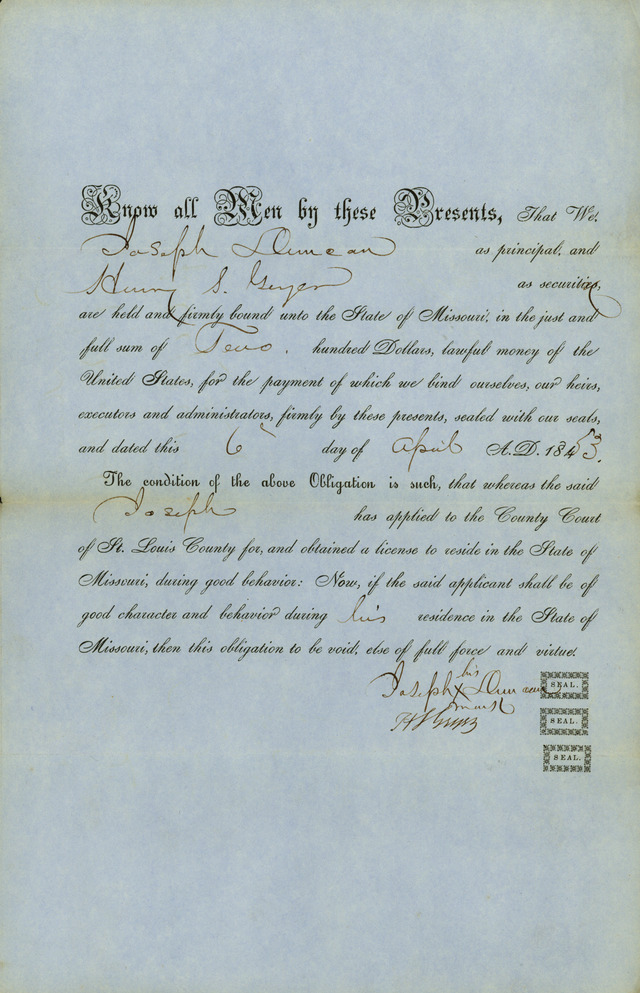 Know all Men by these Presents, That We,
Joseph Duncan as principal, and
Henry S. Geyer as securities,
are held and firmly bound unto the State of Missouri, in the just and
full sum of Two hundred Dollars, lawful money of the
United States, for the payment of which we bind ourselves, our heirs,
executors and administrators, firmly by these presents, sealed with our seals,
and dated this 6 day of April A.D. 1853.
The condition of the above Obligation is such, that whereas the said
Joseph has applied to the County Court
of St. Louis County for, and obtained a license to reside in the State of
Missouri, during good behavior: Now, if the said applicant shall be of
good character and behavior during his residence in the State of
Missouri, then this obligation to be void, else of full force and virtue.
his
Joseph X Duncan SEAL.
mark
H S Geyer SEAL.
SEAL.